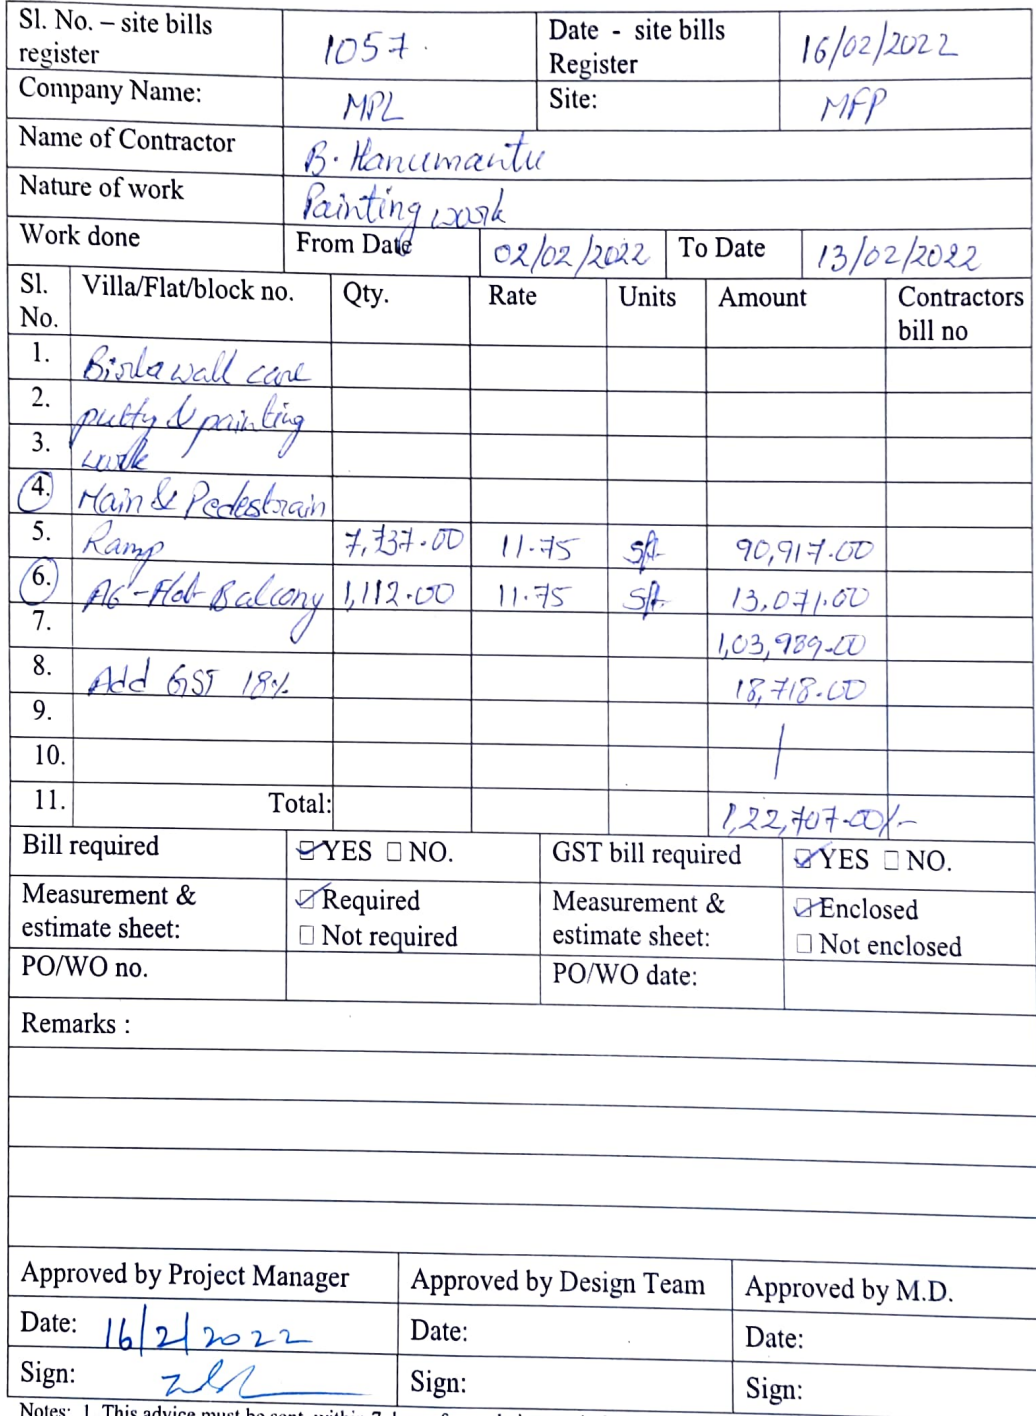 Sl. No. – site bills register 1057. Date - site bills Register 16/02/2022
Company Name: MPL Site: MFP
Name of Contractor B. Hanumantu
Nature of work Painting work
Work done From Date 02/02/2022 To Date 13/02/2022
Sl. No. Villa/Flat/block no. Qty. Rate Units Amount Contractors bill no
1. Birla wall care
2. putty & painting
3. work
4. Main & Pedestrain
5. Ramp 7,737.00 11.75 sft. 90,917.00
6. A6-Flat-Balcony 1,112.00 11.75 sft. 13,071.00
7. 1,03,989.00
8. Add GST 18% 18,718.00
9.
10.
11. Total: 1,22,707.00/-
Bill required YES NO. GST bill required YES NO.
Measurement & estimate sheet: Required Not required Measurement & estimate sheet: Enclosed Not enclosed
PO/WO no. PO/WO date:
Remarks :
Approved by Project Manager Approved by Design Team Approved by M.D.
Date: 16/2/2022 Date: Date:
Sign: Sign: Sign:
Notes: 1. This advice must be sent within 7 days